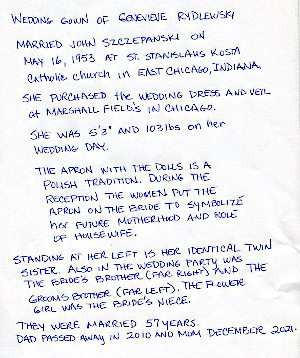 WEDDING GOWN OF GENEVIEVE RYDLEWSKI
MARRIED JOHN SZCZEPANSKI ON
MAY 16, 1953 AT ST. STANISLAUS KOSTA
Catholic church in EAST CHICAGO, INDIANA.
SHE PURCHASED the WEDDING DRESS AND VEIL
at MARSHALL FIELD'S IN CHICAGO.
SHE WAS 5'3" AND 103lbs on her
WEDDING DAY.
THE APRON WITH THE DOLLS IS A
POLISH TRADITION. DURING THE
RECEPTION THE WOMEN PUT THE
APRON ON THE BRIDE TO SYMBOLIZE
her FUTURE MOTHERHOOD AND ROLE
OF HOUSEWIFE.
STANDING AT HER LEFT IS HER IDENTICAL TWIN
SISTER. ALSO IN THE WEDDING PARTY WAS
THE BRIDE'S BROTHER (FAR RIGHT) AND THE
GROOMS BROTHER (FAR LEFT). THE FLOWER
GIRL WAS THE BRIDE'S NIECE.
THEY WERE MARRIED 57 YEARS.
DAD PASSED AWAY IN 2010 AND MOM DECEMBER 2021.